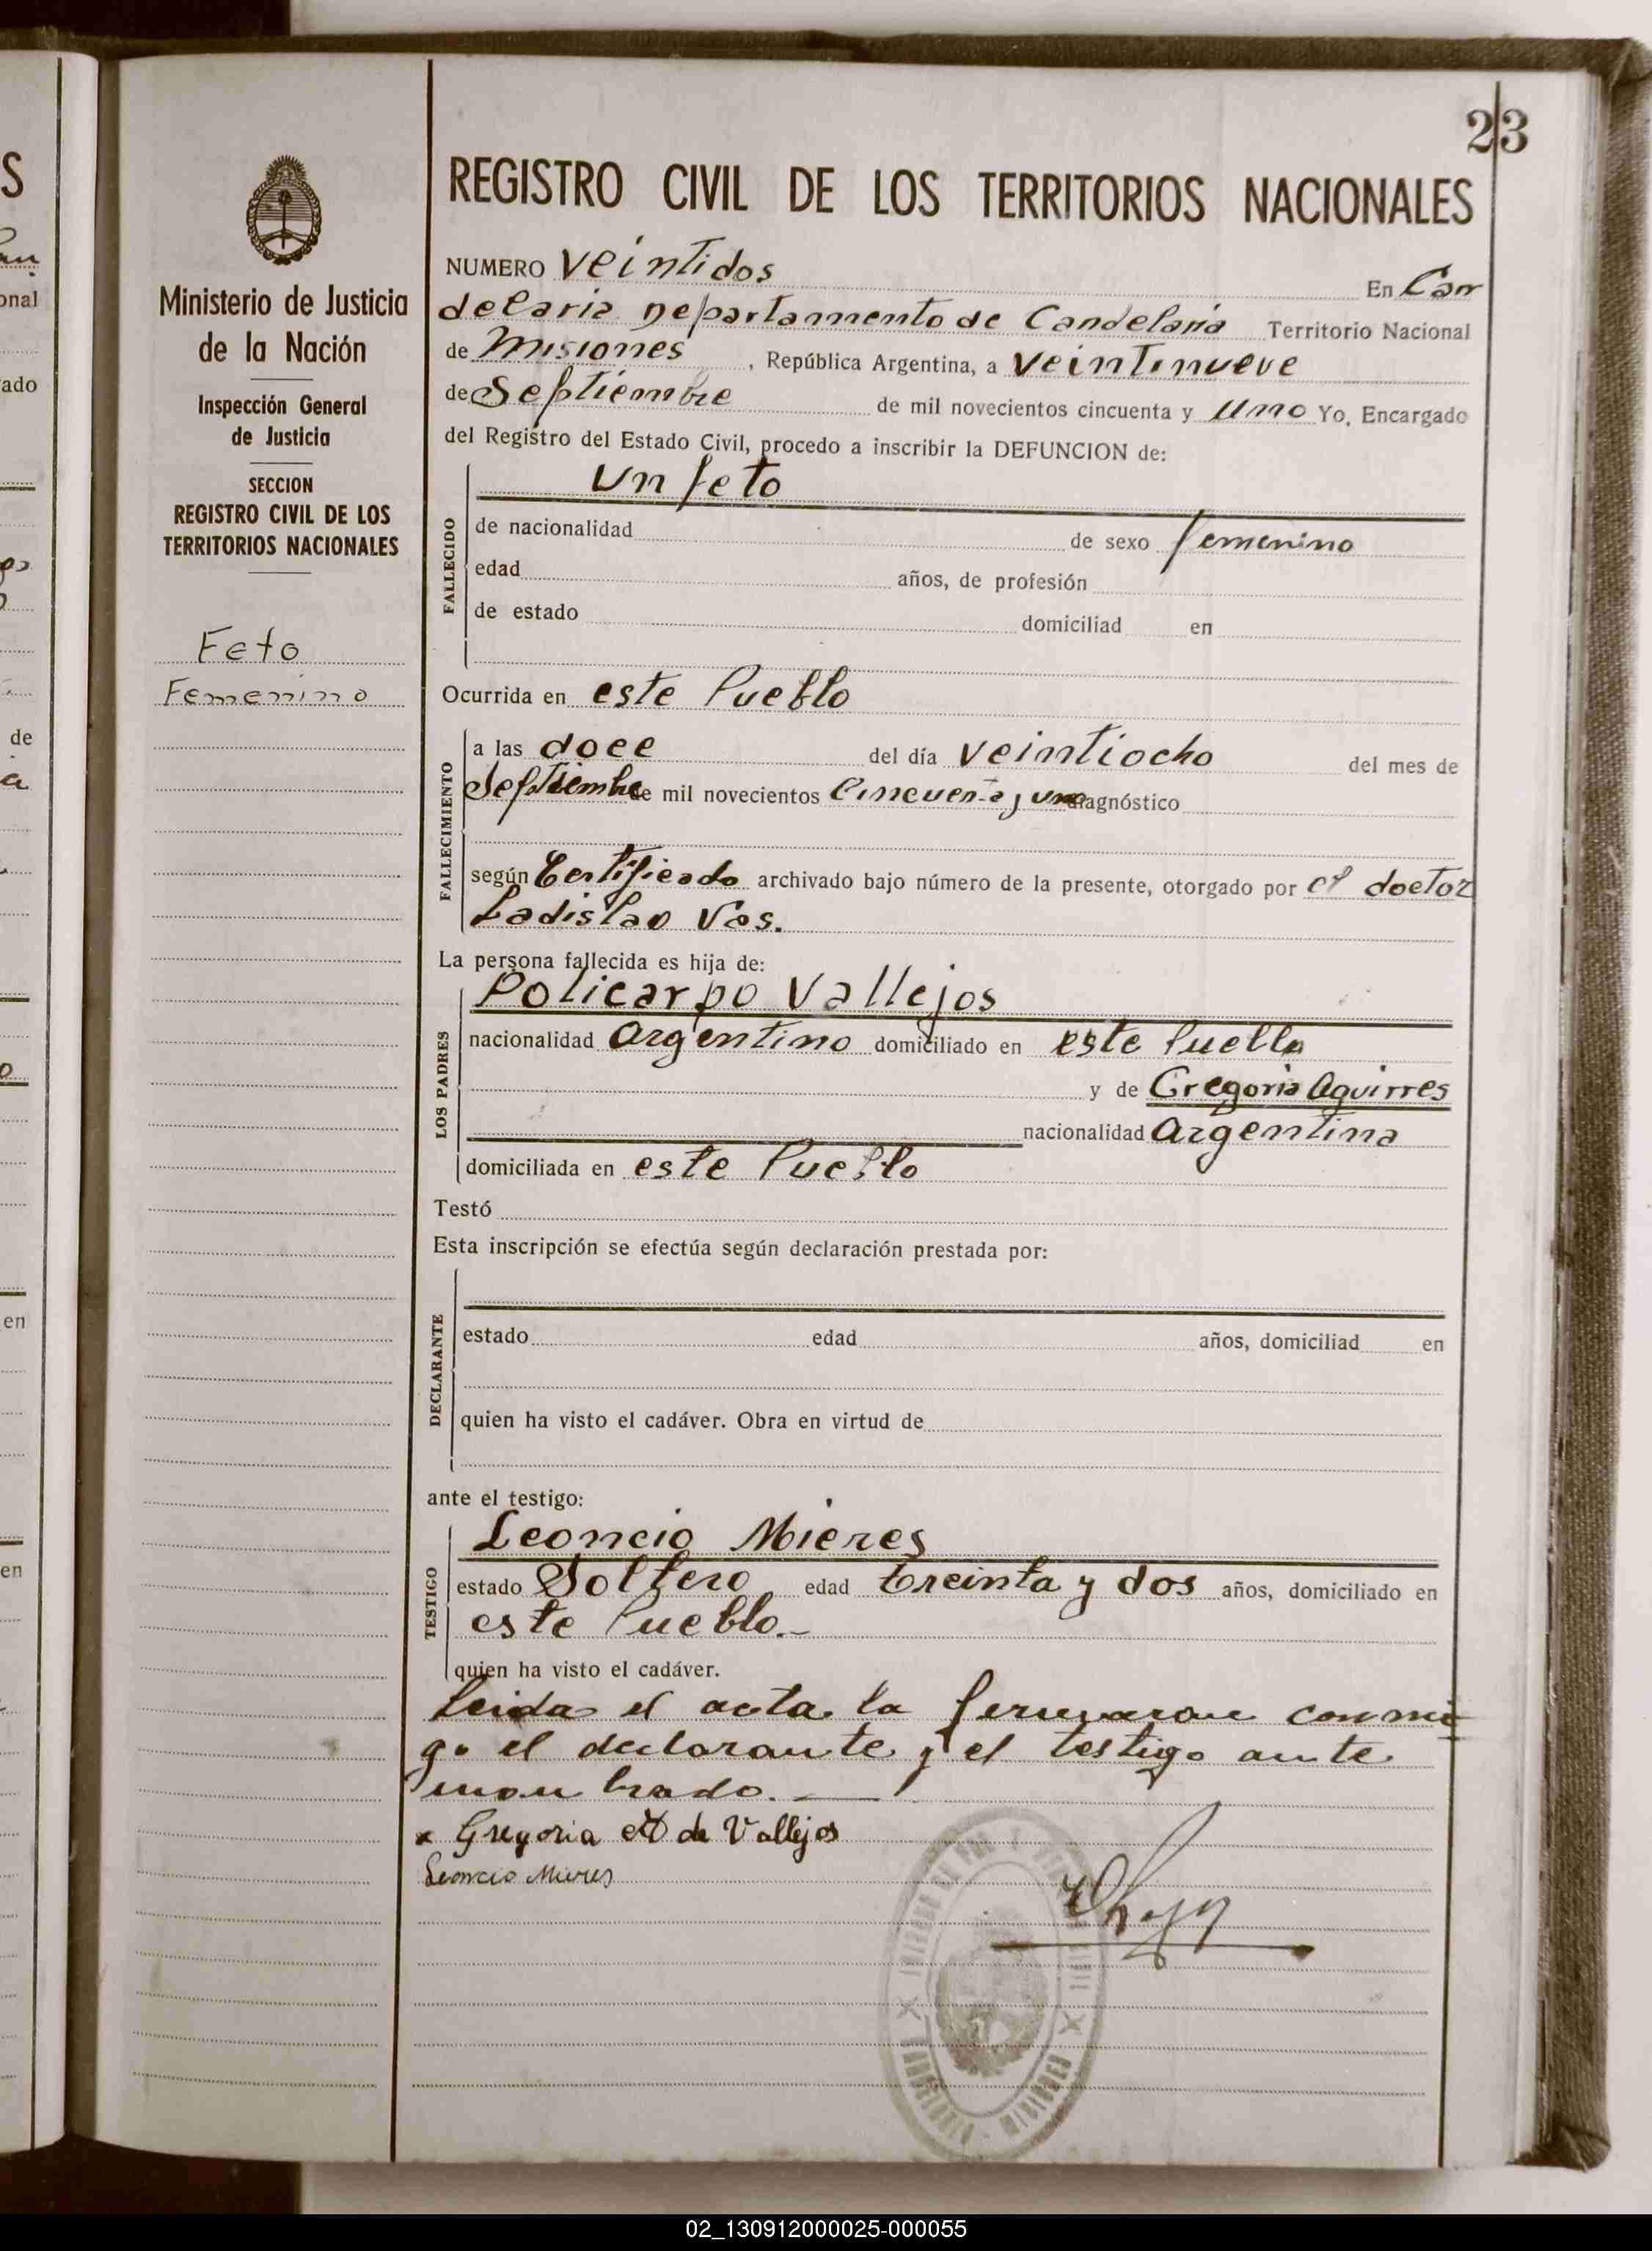 23
REGISTRO CIVIL DE LOS TERRITORIOS NACIONALES
Ministerio de Justicia
de la Nación
Inspección General
de Justicia
SECCION
REGISTRO CIVIL DE LOS
TERRITORIOS NACIONALES
Feto
Femenino
NUMERO veintidos En Can
delaria Departamento de Candelaria Territorio Nacional
de Misiones, República Argentina, a veintinueve
de Septiembre de mil novecientos cincuenta y uno Yo, Encargado
del Registro del Estado Civil, procedo a inscribir la DEFUNCION de:
un feto
FALLECIDO
de nacionalidad de sexo femenino
edad años, de profesión
de estado domiciliad en
Ocurrida en este Pueblo
FALLECIMIENTO
a las doce del día veintiocho del mes de
Septiembre de mil novecientos Cincuenta y uno diagnóstico
según Certificado archivado bajo número de la presente, otorgado por el doctor
Ladislao Vas.
La persona fallecida es hija de:
LOS PADRES
Policarpo Vallejos
nacionalidad Argentino domiciliado en este Pueblo
y de Gregoria Aguirres
nacionalidad Argentina
domiciliada en este Pueblo
Testó
Esta inscripción se efectúa según declaración prestada por:
DECLARANTE
estado edad años, domiciliad en
quien ha visto el cadáver. Obra en virtud de
ante el testigo:
TESTIGO
Leoncio Mieres
estado Soltero edad treinta y dos años, domiciliado en
este Pueblo.-
quien ha visto el cadáver.
Leida el acta la firmaron conmi
go el declarante y el testigo ante
nombrado.
x Gregoria A de Vallejos
Leoncio Mieres
CANDELARIA MISIONES
02_130912000025-000055